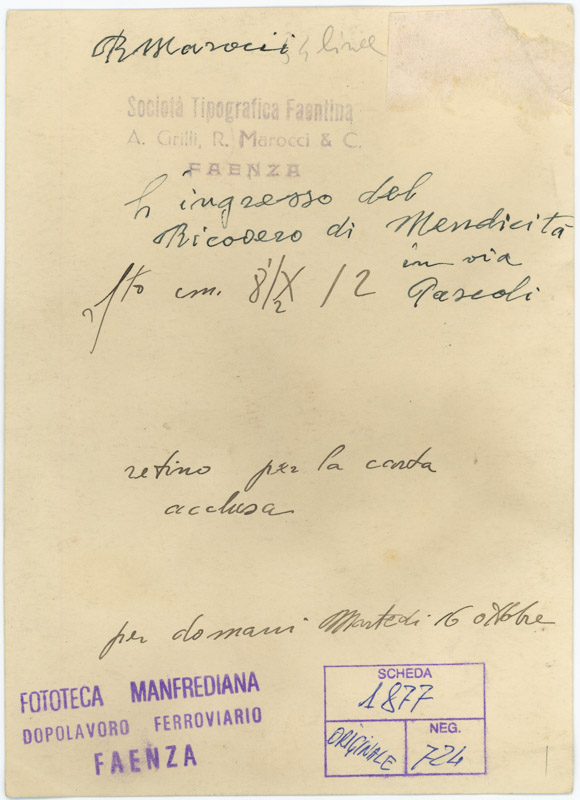 R Marocci 54 linee
Società Tipografica Faentina
A. Grilli, R. Marocci & C.
FAENZA
L'ingresso del
Ricovero di Mendicità
in via
Pascoli
cm. 8 1/2 X 12
retino per la carta
acclusa
per domani Martedì 16 ottobre
FOTOTECA MANFREDIANA
DOPOLAVORO FERROVIARIO
FAENZA
SCHEDA
1877
ORIGINALE
NEG.
724